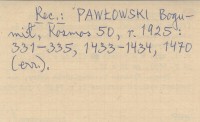 Rec.: PAWŁOWSKI Bogu-
mił, Kosmos 50, r. 1925:
331-335, 1433-1434, 1470
(err.).